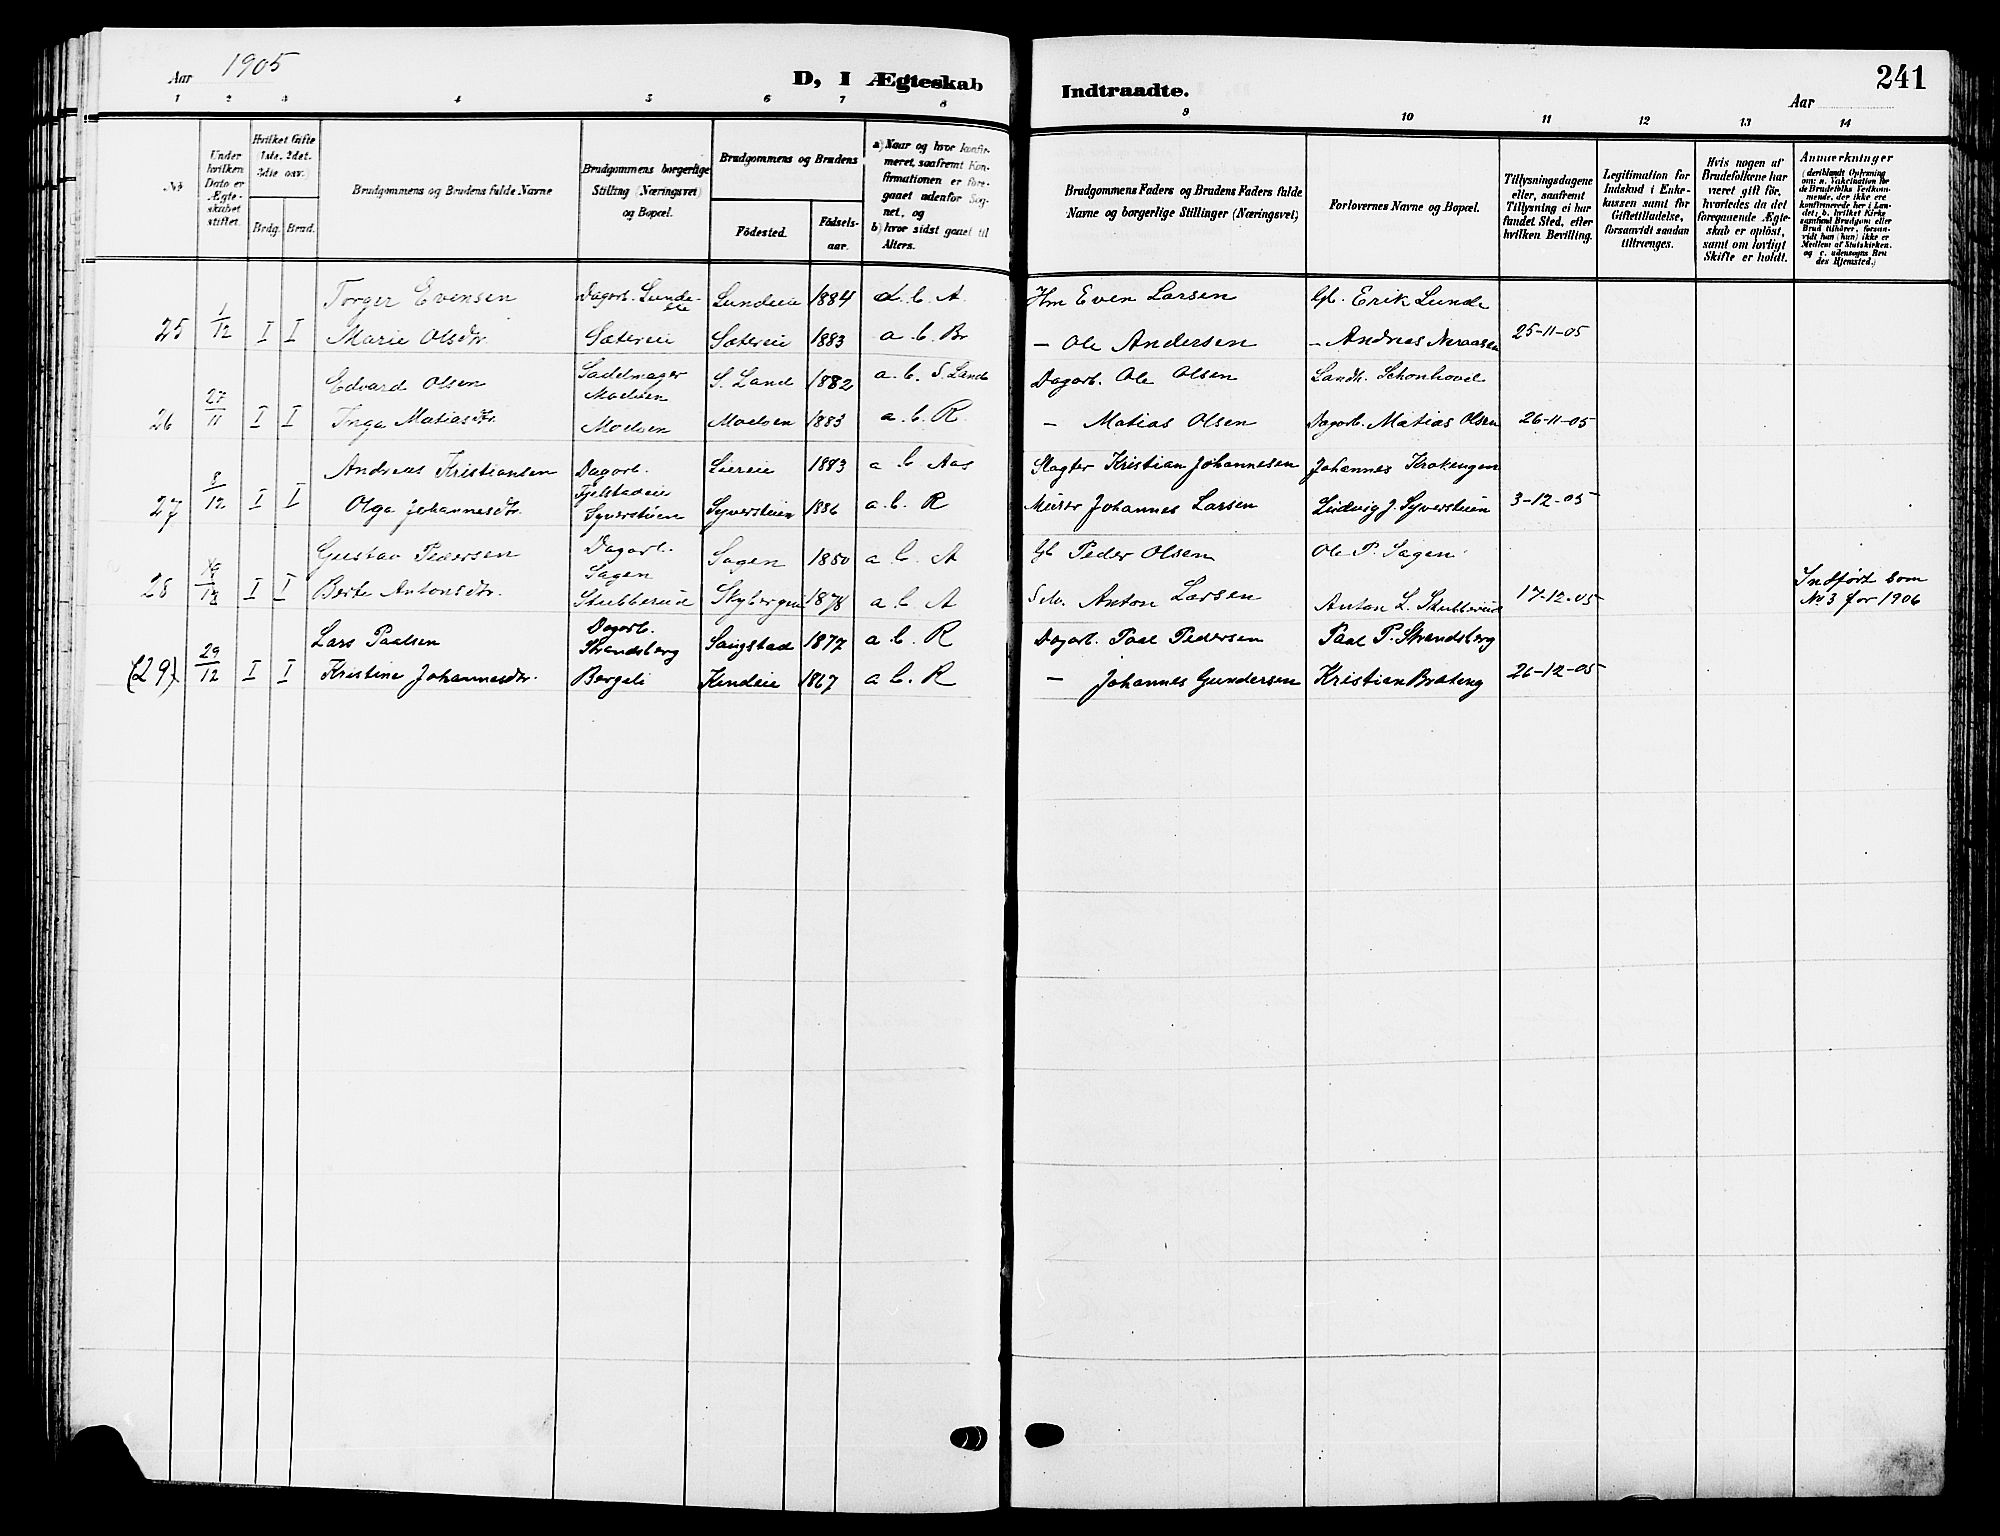 Aar 1905
D, I Ægteskab Indtraadte.
241
Aar
1 2 3 4 5 6 7 8 9 10 11 12 13 14
No
Under hvilken Dato er Ægteskabet stiftet.
Hvilket Gifte 1ste, 2det, 3die osv.)
Brdg. Brud.
Brudgommens og Brudens fulde Navne
Brudgommens borgerlige Stilling (Næringsvei) og Bopæl.
Brudgommens og Brudens
Födested. Födselsaar.
a) Naar og hvor konfirmeret, saafremt Konfirmationen er foregaaet udenfor Sognet, og
b) hvor sidst gaaet til Alters.
Brudgommens Faders og Brudens Faders fulde Navne og borgerlige Stillinger (Næringsvei)
Forlovernes Navne og Bopæl.
Tillysningsdagene eller, saafremt Tillysning ei har fundet Sted, efter hvilken Bevilling.
Legitimation for Indskud i Enkekassen samt for Giftetilladelse, forsaavidt saadan tiltrænges.
Hvis nogen af Brudefolkene har været gift för, hvorledes da det foregaaende Ægteskab er oplöst, samt om lovligt Skifte er holdt.
Anmærkninger (deriblandt Oplysning om: a. Vakcination for de Brudefolks Vedkommende, der ikke ere konfirmerede her i Landet; b. hvilket Kirkesamfund Brudgom eller Brud tilhörer, forsaavidt han (hun) ikke er Medlem af Statskirken, og c. udensogns Brudes Hjemsted.)
Torger Evensen Dagarb. Lunde- Lundeie 1884 a. b. A Hm Even Larsen Gb. Erik Lunde
25 1/12 I I Marie Olsdtr. Sætereie Sætereie 1883 a. b. Br — Ole Andersen — Andreas Neraasen 25-11-05
Edvard Olsen Sadelmager Moelven S. Land 1882 a. b. S. Land Dagarb. Ole Olsen Landh. Schonhovd
26 27/11 I I Inga Matiasdtr. Moelven Moelven 1883 a. b. R — Matias Olsen Dagarb. Matias Olsen 26-11-05
Andreas Kristiansen Dagarb. Fjelstadeie Liereie 1883 a b Aas Slagter Kristian Johannesen Johannes Krokengen
27 8/12 I I Olga Johannesdtr. Syverstuen Syverstuen 1886 a. b. R Murer Johannes Larsen Ludvig J. Syverstuen 3-12-05
Gustav Pedersen Dagarb. Sagen Sagen 1850 a b. A Gb Peder Olsen Ole P. Sagen
28 I I Berte Antonsdtr. Stubberud Skybergeie 1878 a b. A Selv. Anton Larsen Anton L. Stubberud 17-12-05 Indfört som No 3 for 1906
Lars Paalsen Dagarb. Strandsberg Saugstad 1877 a b. R Dagarb. Paal Pedersen Paal P. Strandsberg
(29) 29/12 I I Kristine Johannesdtr. Bergeli Kindeie 1867 a b. R — Johannes Gundersen Kristian Bråteng 26-12-05